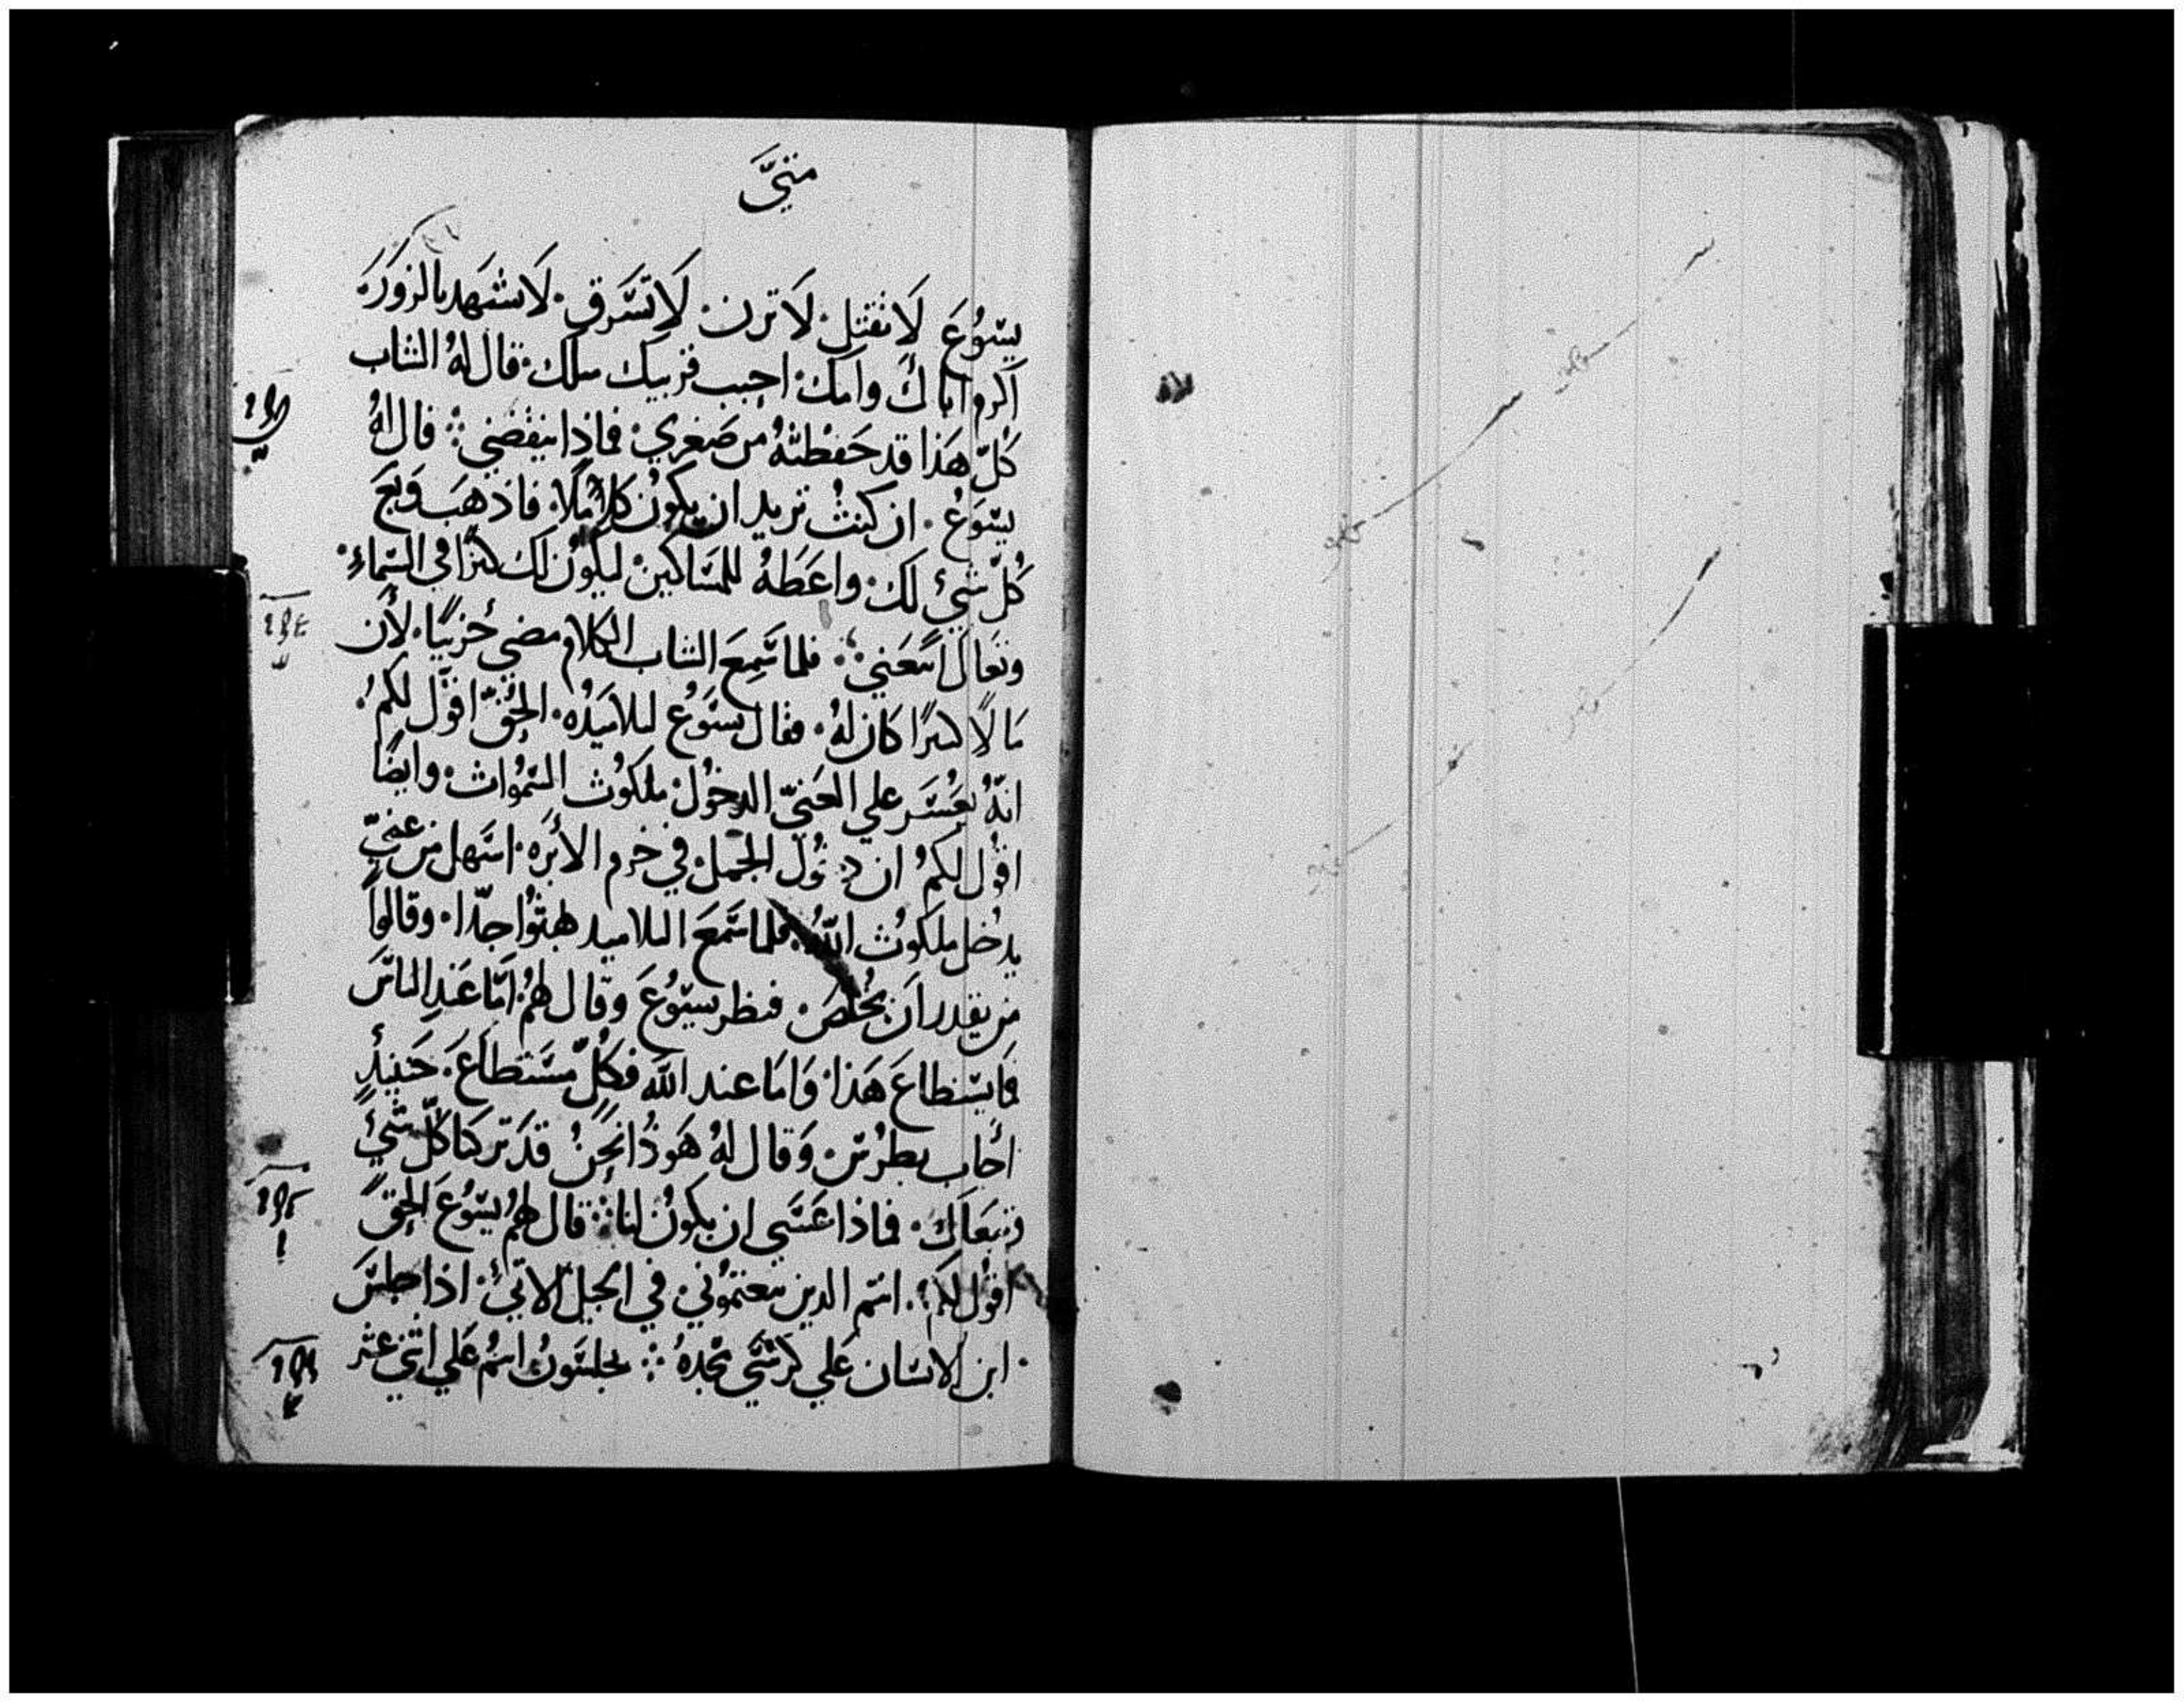 متيَّ
يسُوُعَ لَا تقتل. لَا تزن. لَا تسَّرق. لَا تشهد بالزورَ.
اكرم اباك وامك. احبب قريبك مثلك. قال لهُ الشاب
كلّ هَذا قد حَفظتهُ من صَغري. فماذا ينقضني؞ قال لهُ
يسَوُعُ. ان كنتُ تريد ان يكوُن كاملًا. فاذهَب وَبعَ
كُلّ شيئ لك. واعَطهُ للمسَاكين. ليكوُن لك كنزًا في السَّماءِ.
وتعَال اتبَعني؞ فلما سَّمعَ الشاب الكلام مضي حُزينًا. لأَن
مَالًا كثيرًا كان لهُ. فقال يسَوُع لتلاميَذُه. الحُقّ اقول لكمُ.
انهُّ يعُسَّر علي الغنيّ الدخوُل. ملكوُت السَّموُات. وايضًا
اقوُل لكمُ ان دخوُل الجمَل. في خرم الأبرَه. اسَهل من غنيٍّ
يدخُل ملكوُت اللهُ. فلما سَّمعَ التلاميد بهتوُا جدّا. وقالوا
من يقدر اَن يخُلصَ. فنظر يسَّوُعَ وقال لهمُ. امّا عَند الناسَّ
فمَا يسَّتطاعَ هَذا. وَامَا عند اللهَ فكلّ مسَّتطاَعَ. حَينيذٍ
اُجاب بطرُسّ. وَقال لهُ هَوذُا نحُنُ قدَ تركنا كلّ شيئٍ
وتبعَاك. فماذا عَسَّي ان يكوُن لنا؞ قال لهمُ يسَّوُعَ الحقَّ
اقوُل لكمَ. انتم الدين تبعتموُني. في الجيل الاتيُ. اذا جلسَّ
ابن الانسَّان عَلي كرُسَّيّ مجدهُ؞ تجلسَّوُن انتمُ عَلي اثني عشر